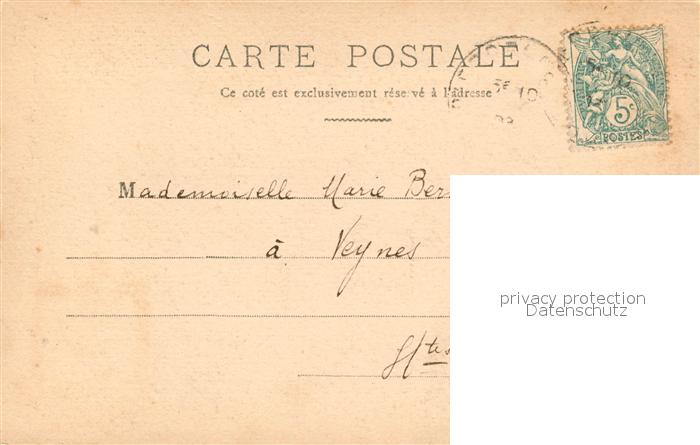 CARTE POSTALE
Ce coté est exclusivement réservé à l'adresse
5c
POSTES
Mademoiselle Marie Ber
à Veynes
Htes
privacy protection
Datenschutz